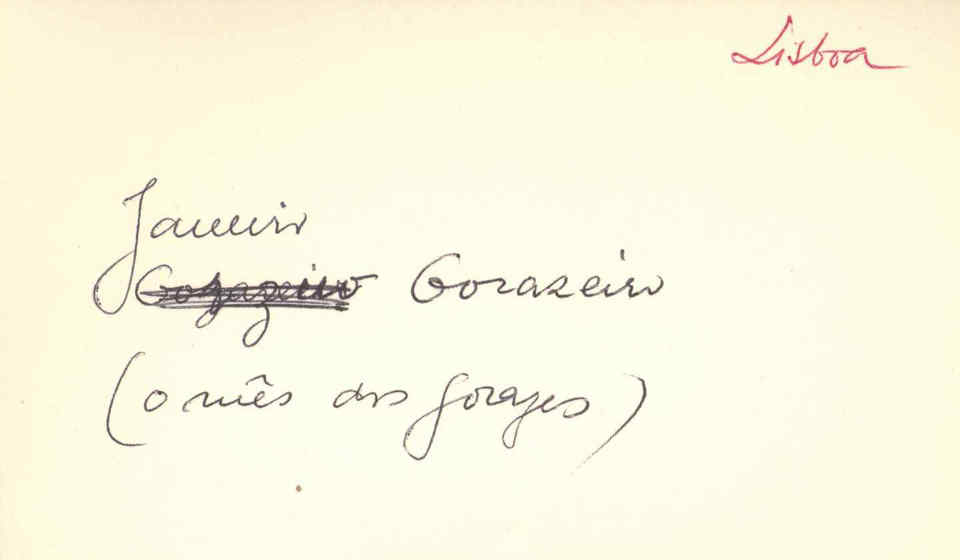 Lisboa
Janeiro
Gorazeiro
(o mês dos gorazes)